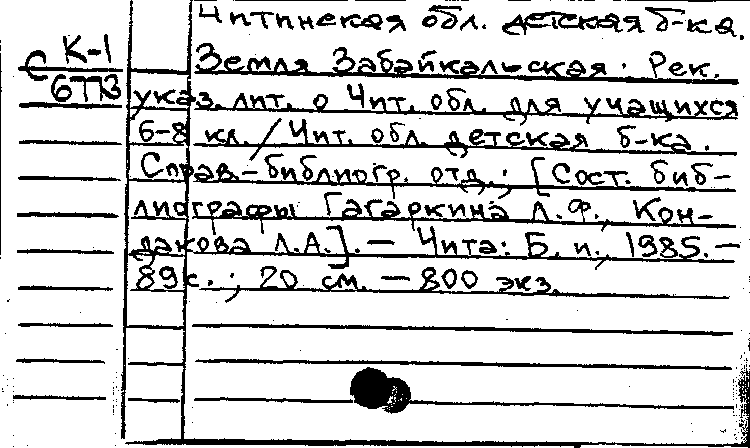 Читинская обл. детская б-ка.
С К-1
6773
Земля Забайкальская: Рек.
указ. лит. о Чит. обл. для учащихся
6-8 кл. / Чит. обл. детская б-ка.
Справ.-библиогр. отд.; [Сост. биб-
лиографы Гагаркина Л.Ф., Кон-
дакова Л.А.]. — Чита: Б. и., 1985. —
89с.; 20 см. — 800 экз.